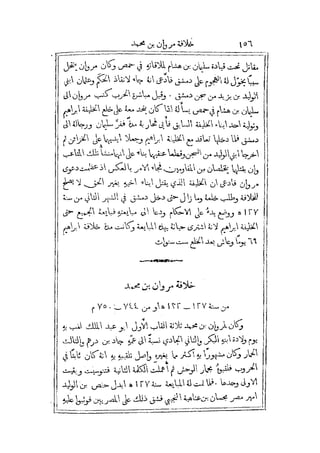 ١٥٦ خلافة مروان بن محمد
مقاتل تحت قيادة سليمان بن هشام لملاقاته في حمص وكان مروان ينتحل
سببًا يخول له الهجوم على دمشق فادعى انه جاء لانقاذ الحكم وعثمان ابني
الوليد بن يزيد من سجن دمشق. وقبل مباشرة الحرب كتب مروان الى
سليمان بن هشام يسأله اذا كان يتحد معه على خلع الخليفة ابراهيم
وتولية احد ابناء الخليفة السابق فأبى فحاربه مدة ففر سليمان ورجاله الى
دمشق فلما دخلها تعاقد مع الخليفة ابراهيم وجعلا ايديهما على الخزائن ثم
اخرجا ابني الوليد من السجن وقطعا عنقيهما بناء على انهما منشأ تلك المتاعب
وان بقتلهما يتخلصان من المقاومين فجاء الامر بالعكس اذ دعوى
مروان فادعى ان الخليفة الذي يقتل ابناء اخيه بغير الحق لا يصلح
للخلافة وطلب خلعه وما زال حتى دخل دمشق في الشهر الثاني من سنة
١٢٧ ﻫ ووضع يده على الاحكام ودعا الى مبايعته فبايعه الجميع حتى
الخليفة ابراهيم لانه اشترى حياته بتلك المبايعة وكانت مدة خلافة ابراهيم
٦٩ يومًا وعاش بعد الخلع ست سنوات
خلافة مروان بن محمد
من سنة ١٢٧ – ١٣٢ ﻫ او من ٧٤٤ – ٧٥٠ م
وكان لمروان بن محمد ثلاثة القاب الاول ابو عبد الملك لقب به
يوم ولادة ابنه البكر والثاني الجعدي نسبة الى عمه جعد بن درهم والثالث
الحمار وكان مشهورًا به اكثر مما بغيره واصل تلقيبه به انه كان ثابتًا في
الحروب فلقبوه بحمار الوحش ثم أهملت الكلمة الثانية فتنوسيت وبقيت
الاولى وحدها. فلما تمت له المبايعة سنة ١٢٧ ﻫ ابدل حفص بن الوليد
امير مصر بحسان بن عتاهية التجيبي فشق ذلك على المصريين فوثبوا عليه